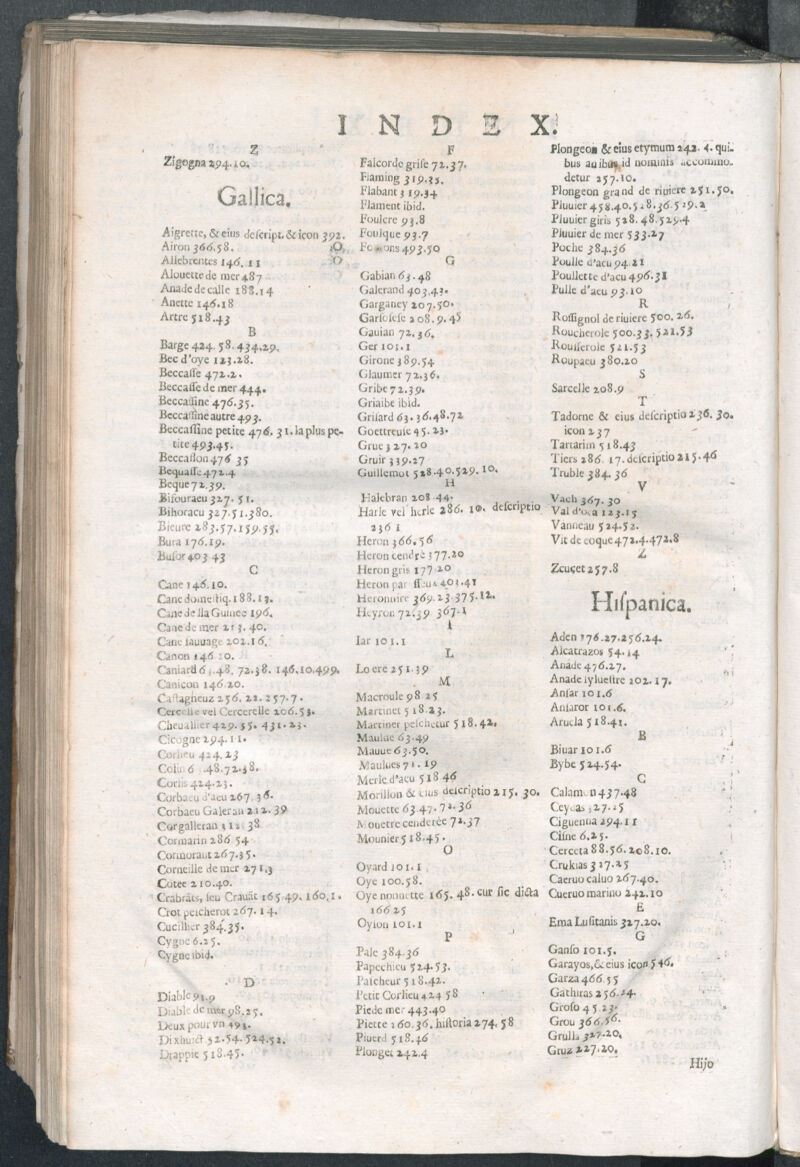 INDEX.
Z
Zigogna 294.10.
Gallica.
Aigrette, & eius descript. & icon 392.
Airon 366.58.
Allebrentes 146.11
Alouette de mer 487
Anade de calle 188.14
Anette 146.18
Artre 518.43
B
Barge 424.58.434.29.
Bec d'oye 123.28.
Beccasse 472.2.
Beccasse de mer 444.
Beccassine 476.35.
Beccassine autre 493.
Beccassine petite 476.31. la plus pe-
tite 493.45.
Beccasson 476 35
Bequasse 472.4
Beque 72.39.
Bisouraeu 327.51.
Bihoracu 327.51.380.
Bieure 283.57.159.55.
Bura 176.19.
Butor 403 43
C
Cane 146.10.
Cane domestiq. 188.13.
Cane de lla Guinee 196.
Cane de mer 213.40.
Cane sauuage 202.16.
Canon 146 10.
Caniard 6 .48. 72.38. 146.10.499.
Canicon 146.20.
Castagneuz 256.22.257.7.
vel Cercerelle 206.53.
Cheuallier 429.35. 431.23.
Cicogne 294.11.
Corlieu 424.23
.48.72.38.
Corlis 424.23.
Corbaeu d'aeu 267.36.
Corbaeu Galeran 212.39
Corgalleran 38
Cormarin 286 54
Cormoraut 267.35.
Corneille de mer 271.3
Cotee 210.40.
Crabrâts, seu Crauât 165 49. 160.1.
Crot peicherot 267.14.
Cucilher 384.35.
Cygne 6.25.
Cygne ibid.
D
Diable 93.9
Diable de mer 98.25.
Deux pour vn 493.
Dixhuict 52.54.524.52.
Drappie 518.45.
F
Falcorde grise 72.37.
Flaming 319.35.
Flabant 319.34
Flament ibid.
Foulcre 93.8
Foulque 93.7
493.50
G
Gabian 63.48
Galerand 403.43.
Garganey 207.50.
208.9.45
Gauian 72.36.
Ger 101.1
Girone 389.54
Glaumer 72.36.
Gribe 72.39.
Griaibe ibid.
Grisard 63.36.48.72
Goettreuse 45.23.
Grue 327.20
Gruir 339.27
Guillemot 528.40.529.10.
H
Halebran 208 44.
Harle vel herle 286.10. descriptio
236 1
Heron 366.56
Heron cendré 377.20
Heron gris 177 20
Heron par 403.41
Heronnire 369.23 375.12.
Heyron 72.39 367.1
I
Iar 101.1
L
Lo ere 251.39
M
Macroule 98 25
Martinet 518.23.
Martinet pescheur 518.42.
Maulue 63.49
Mauue 63.50.
Maulues 71.19
Merle d'aeu 518 46
Morillon & eius descriptio 215.30.
Mouette 63.47.72.36
Mouetre cenderée 72.37
Mounier 518.45.
O
Oyard 101.1
Oye 100.58.
Oye nonnette 165.48. cur sic dicta
166 25
Oyson 101.1
P
Pale 384.36
Papechieu 524.53.
Pascheur 518.42.
Petit Corlieu 424 58
Piede mer 443.40
Piette 160.36. historia 274.58
Piuerd 518.46
Plonget 242.4
Plongeon & eius etymum 242.4. qui-
bus auibus id nominis accommo-
detur 257.10.
Plongeon grand de riuiere 251.50.
Pluuier 458.40.528.36.529.2
Pluuier giris 528.48.529.4
Pluuier de mer 533.27
Poche 384.36
Poulle d'acu 94.21
Poullette d'acu 496.31
Pulle d'acu 93.10
R
Rossignol de riuiere 500.26.
Roucherole 500.33.521.53
Rousserole 521.53
Roupaeu 380.20
S
Sarcelle 208.9
T
Tadorne & eius descriptio 236.30.
icon 237
Tartarim 518.43
Tiers 286.17. descriptio 215.46
Truble 384.36
V
Vach 367.30
Val d'oca 123.15
Vanneau 524.52.
Vit de coque 472.4.472.8
Z
Zcuçet 257.8
Hispanica.
Aden 176.27.256.24.
Alcatrazos 54.14
Anade 476.27.
Anade syluestre 202.17.
Ansar 101.6
Ansaror 101.6.
Arucla 518.41.
B
Biuar 101.6
Bybe 524.54.
C
Calamon 437.48
Ceycas 127.25
Ciguenna 294.11
Cisne 6.25.
Cerceta 88.56.208.10.
Crukias 327.25
Caeruo caluo 267.40.
Cueruo marino 242.10
E
Ema Lusitanis 327.20.
G
Ganso 101.5.
Garayos, & eius icon 546.
Garza 466.55
Gathuras 256.24.
Groto 45.23.
Grou 366.56.
Grulla 327.20.
Gruz 227.20.
Hijo